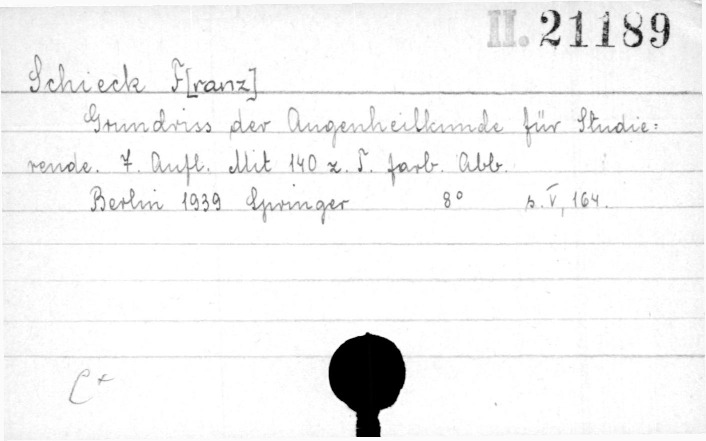 II. 21189
Schieck F[ranz]
Grundriss der Augenheilkunde für Studie:
rende. 7. Aufl. Mit 140 z. T. farb. Abb.
Berlin 1939 Springer 8° s. V, 164.
C+